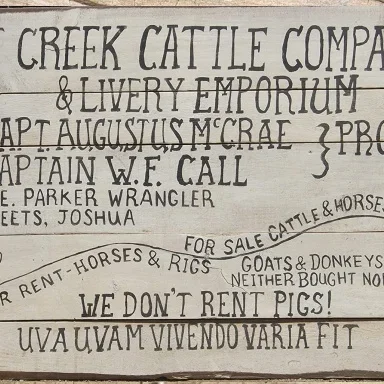 T CREEK CATTLE COMPA
& LIVERY EMPORIUM
APT. AUGUSTUS McCRAE } PRO
APTAIN W.F. CALL
E. PARKER WRANGLER
EETS, JOSHUA
FOR SALE CATTLE & HORSES
R RENT-HORSES & RIGS
GOATS & DONKEYS
NEITHER BOUGHT NO
WE DON'T RENT PIGS!
UVA UVAM VIVENDO VARIA FIT